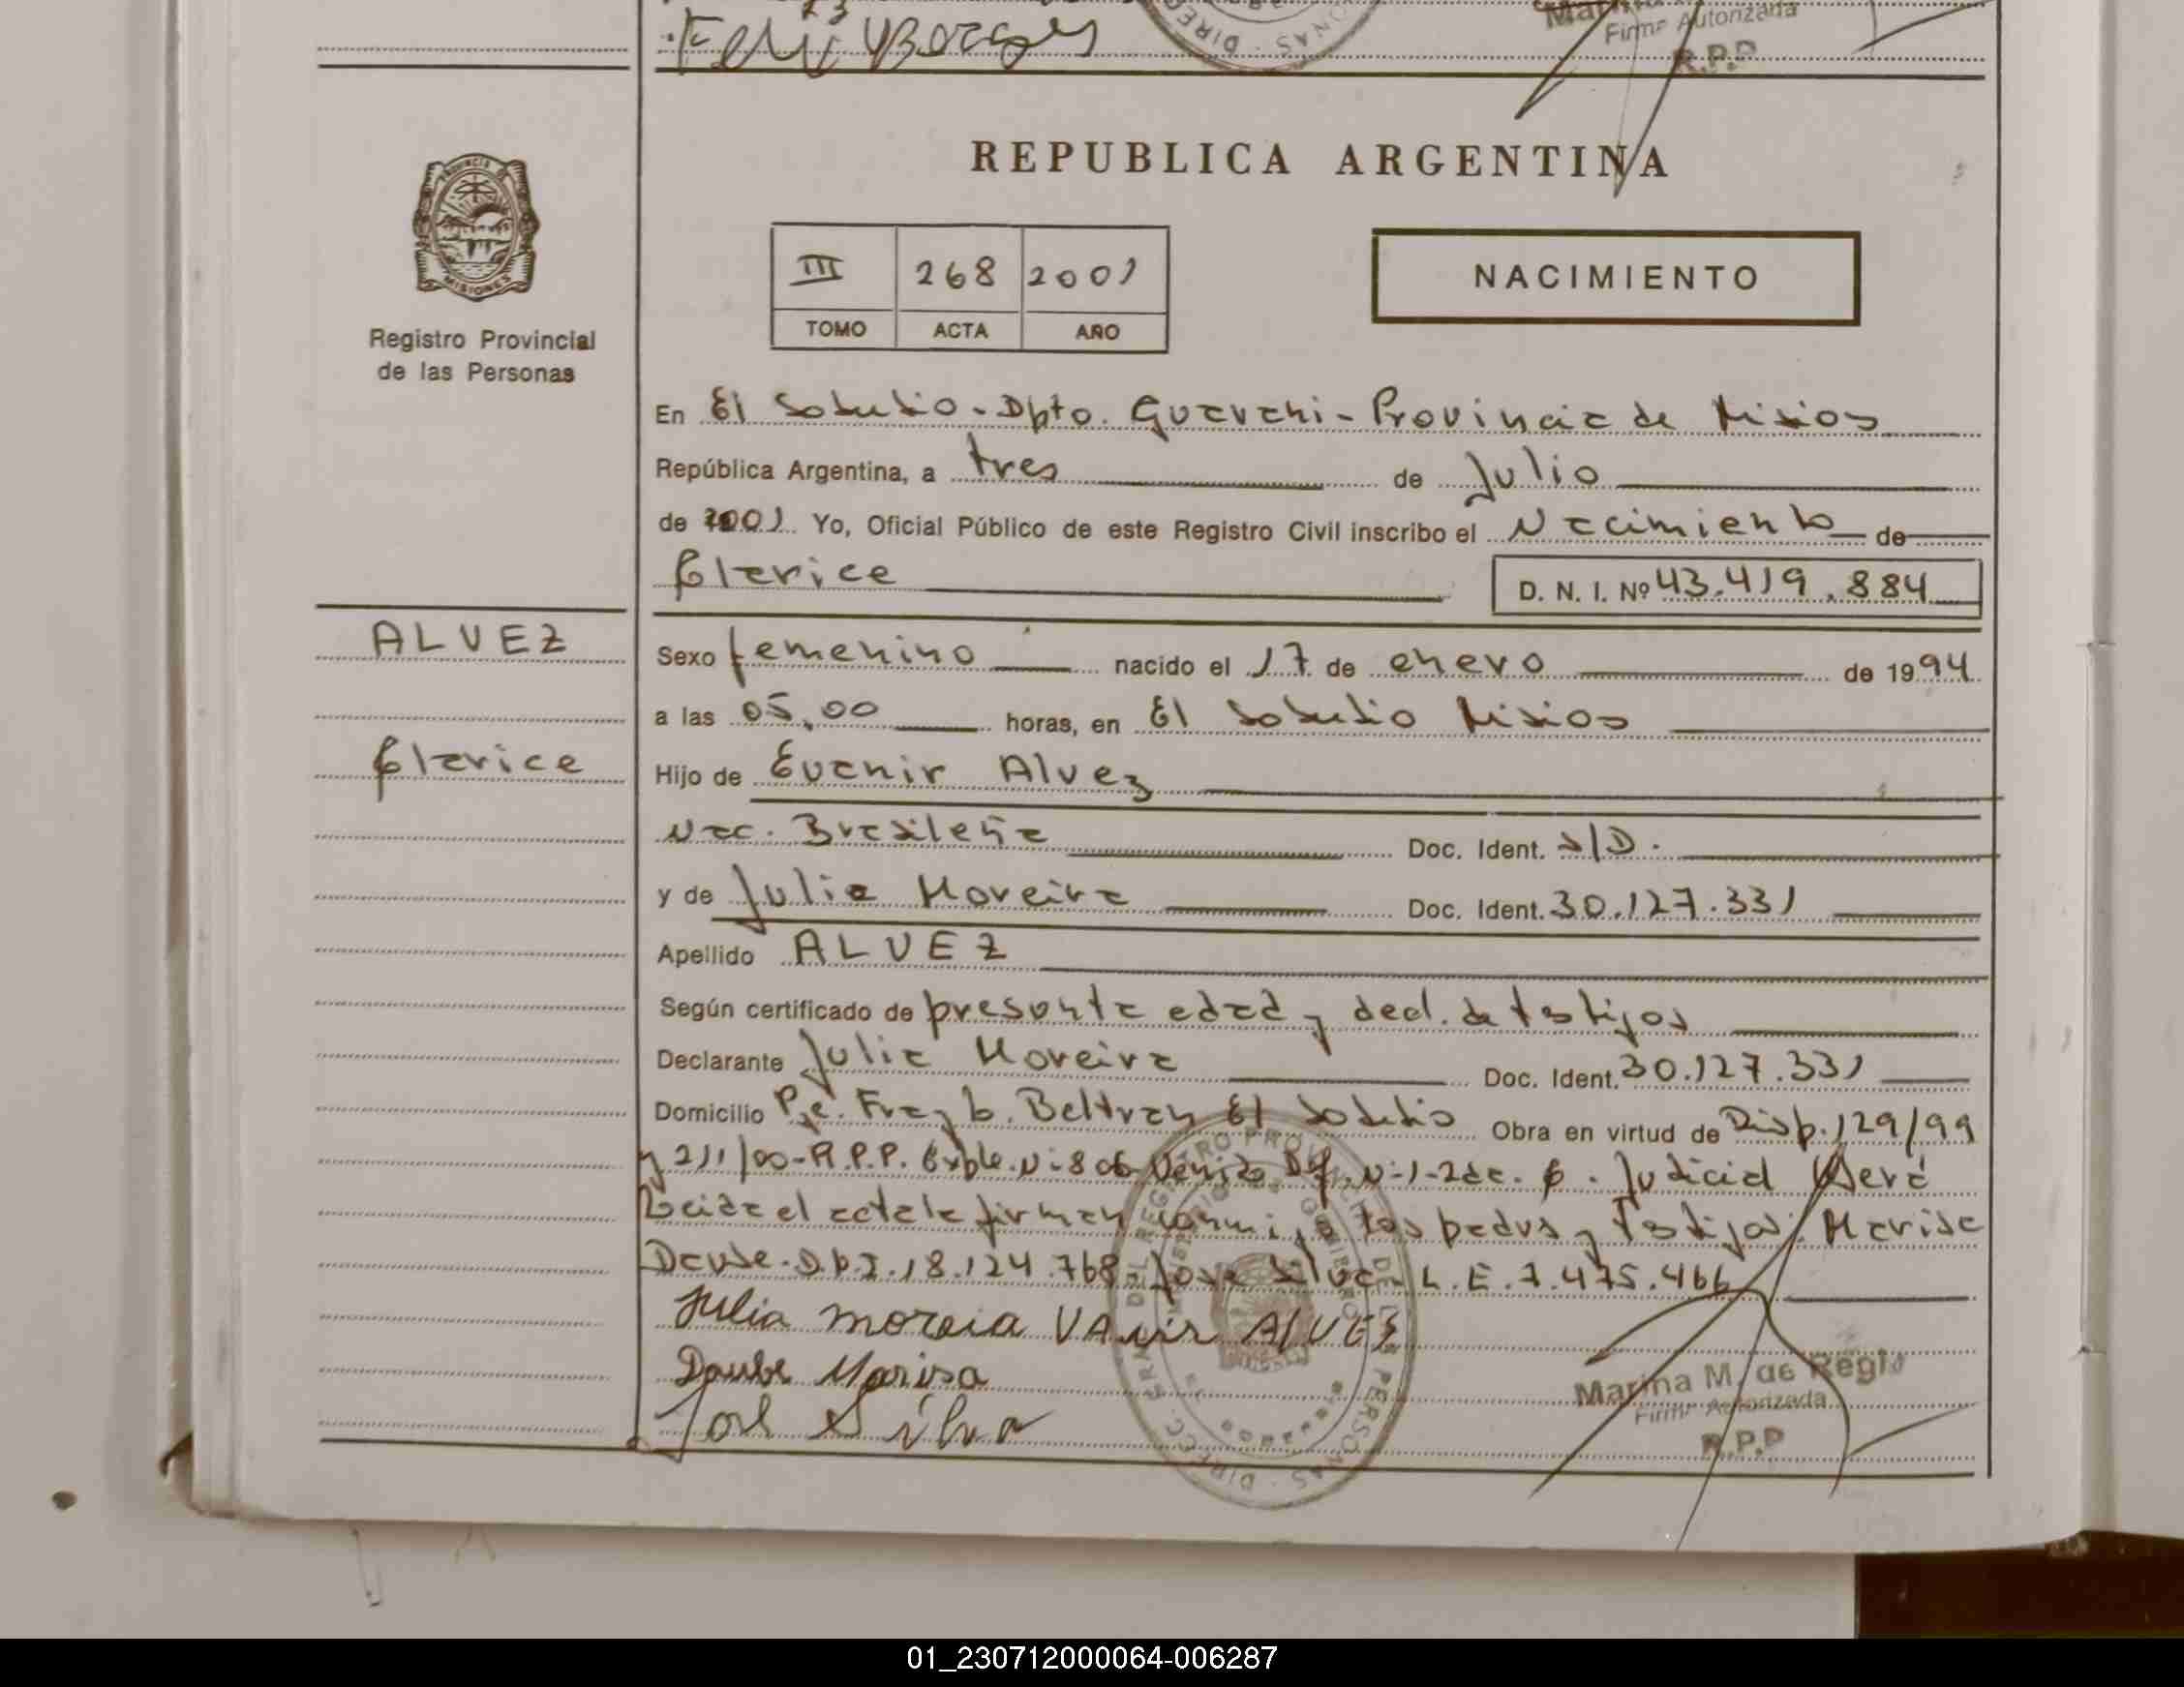 Firma Autorizada
R.P.P
REPUBLICA ARGENTINA
PROVINCIA
MISIONES
Registro Provincial
de las Personas
III 268 2001
TOMO ACTA AÑO
NACIMIENTO
En El Soberbio - Dpto. Guarani - Provincia de Misios
República Argentina, a tres de Julio
de 2001 Yo, Oficial Público de este Registro Civil inscribo el Nacimiento de
Clarice
D. N. I. Nº 43.419.884
ALVEZ
Clarice
Sexo femenino nacido el 17 de enero de 1994
a las 05,00 horas, en El Soberbio Misios
Hijo de Evanir Alvez
Nac. Brasileña Doc. Ident. S/D.
y de Julia Moreira Doc. Ident. 30.127.331
Apellido ALVEZ
Según certificado de presunta edad y decl. de testigos
Declarante Julia Moreira Doc. Ident. 30.127.331
Domicilio Pje. Fray L. Beltran El Soberbio Obra en virtud de Disp. 129/99
y 211/00 - R.P.P. Expte. Nº 806 Nº 1 - 2da. C. Judicial
Leida el acta la firman conmigo los padres y Testigos: Marisa
Daube. D.N.I. 18.124.768 - Jose Silva - L.E. 7.475.466
Julia moreia VAnir ALVEZ
Daube Marisa
José Silva
Marina M. de Regis
Firma Autorizada
R.P.P
01_230712000064-006287